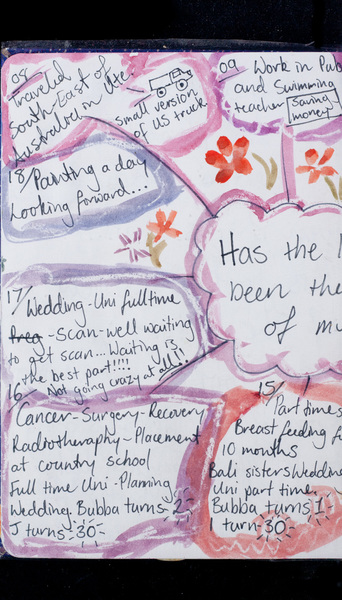 08
Traveled
South-East of
Australia in Ute.
Small version
of US truck
09 Work in Pub
and Swimming
teacher Saving
money
18/Painting a day
looking forward...
Has the
been the
of my
17/Wedding-Uni fulltime
Preg-Scan-well waiting
to get scan...Waiting is
the best part!!!!
Not going crazy at all!!
16
Cancer-Surgery-Recovery
Radiotheraphy-Placement
at country school
Full time Uni-Planing
Wedding. Bubba turns 2
J turns-30-
15/
Part time
Breast feeding
10 months
Bali sisters Wedding
Uni part time.
Bubba turns 1-
I turn-30-